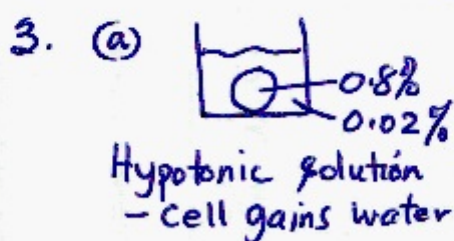 3. (a)
0.8%
0.02%
Hypotonic solution
- Cell gains water